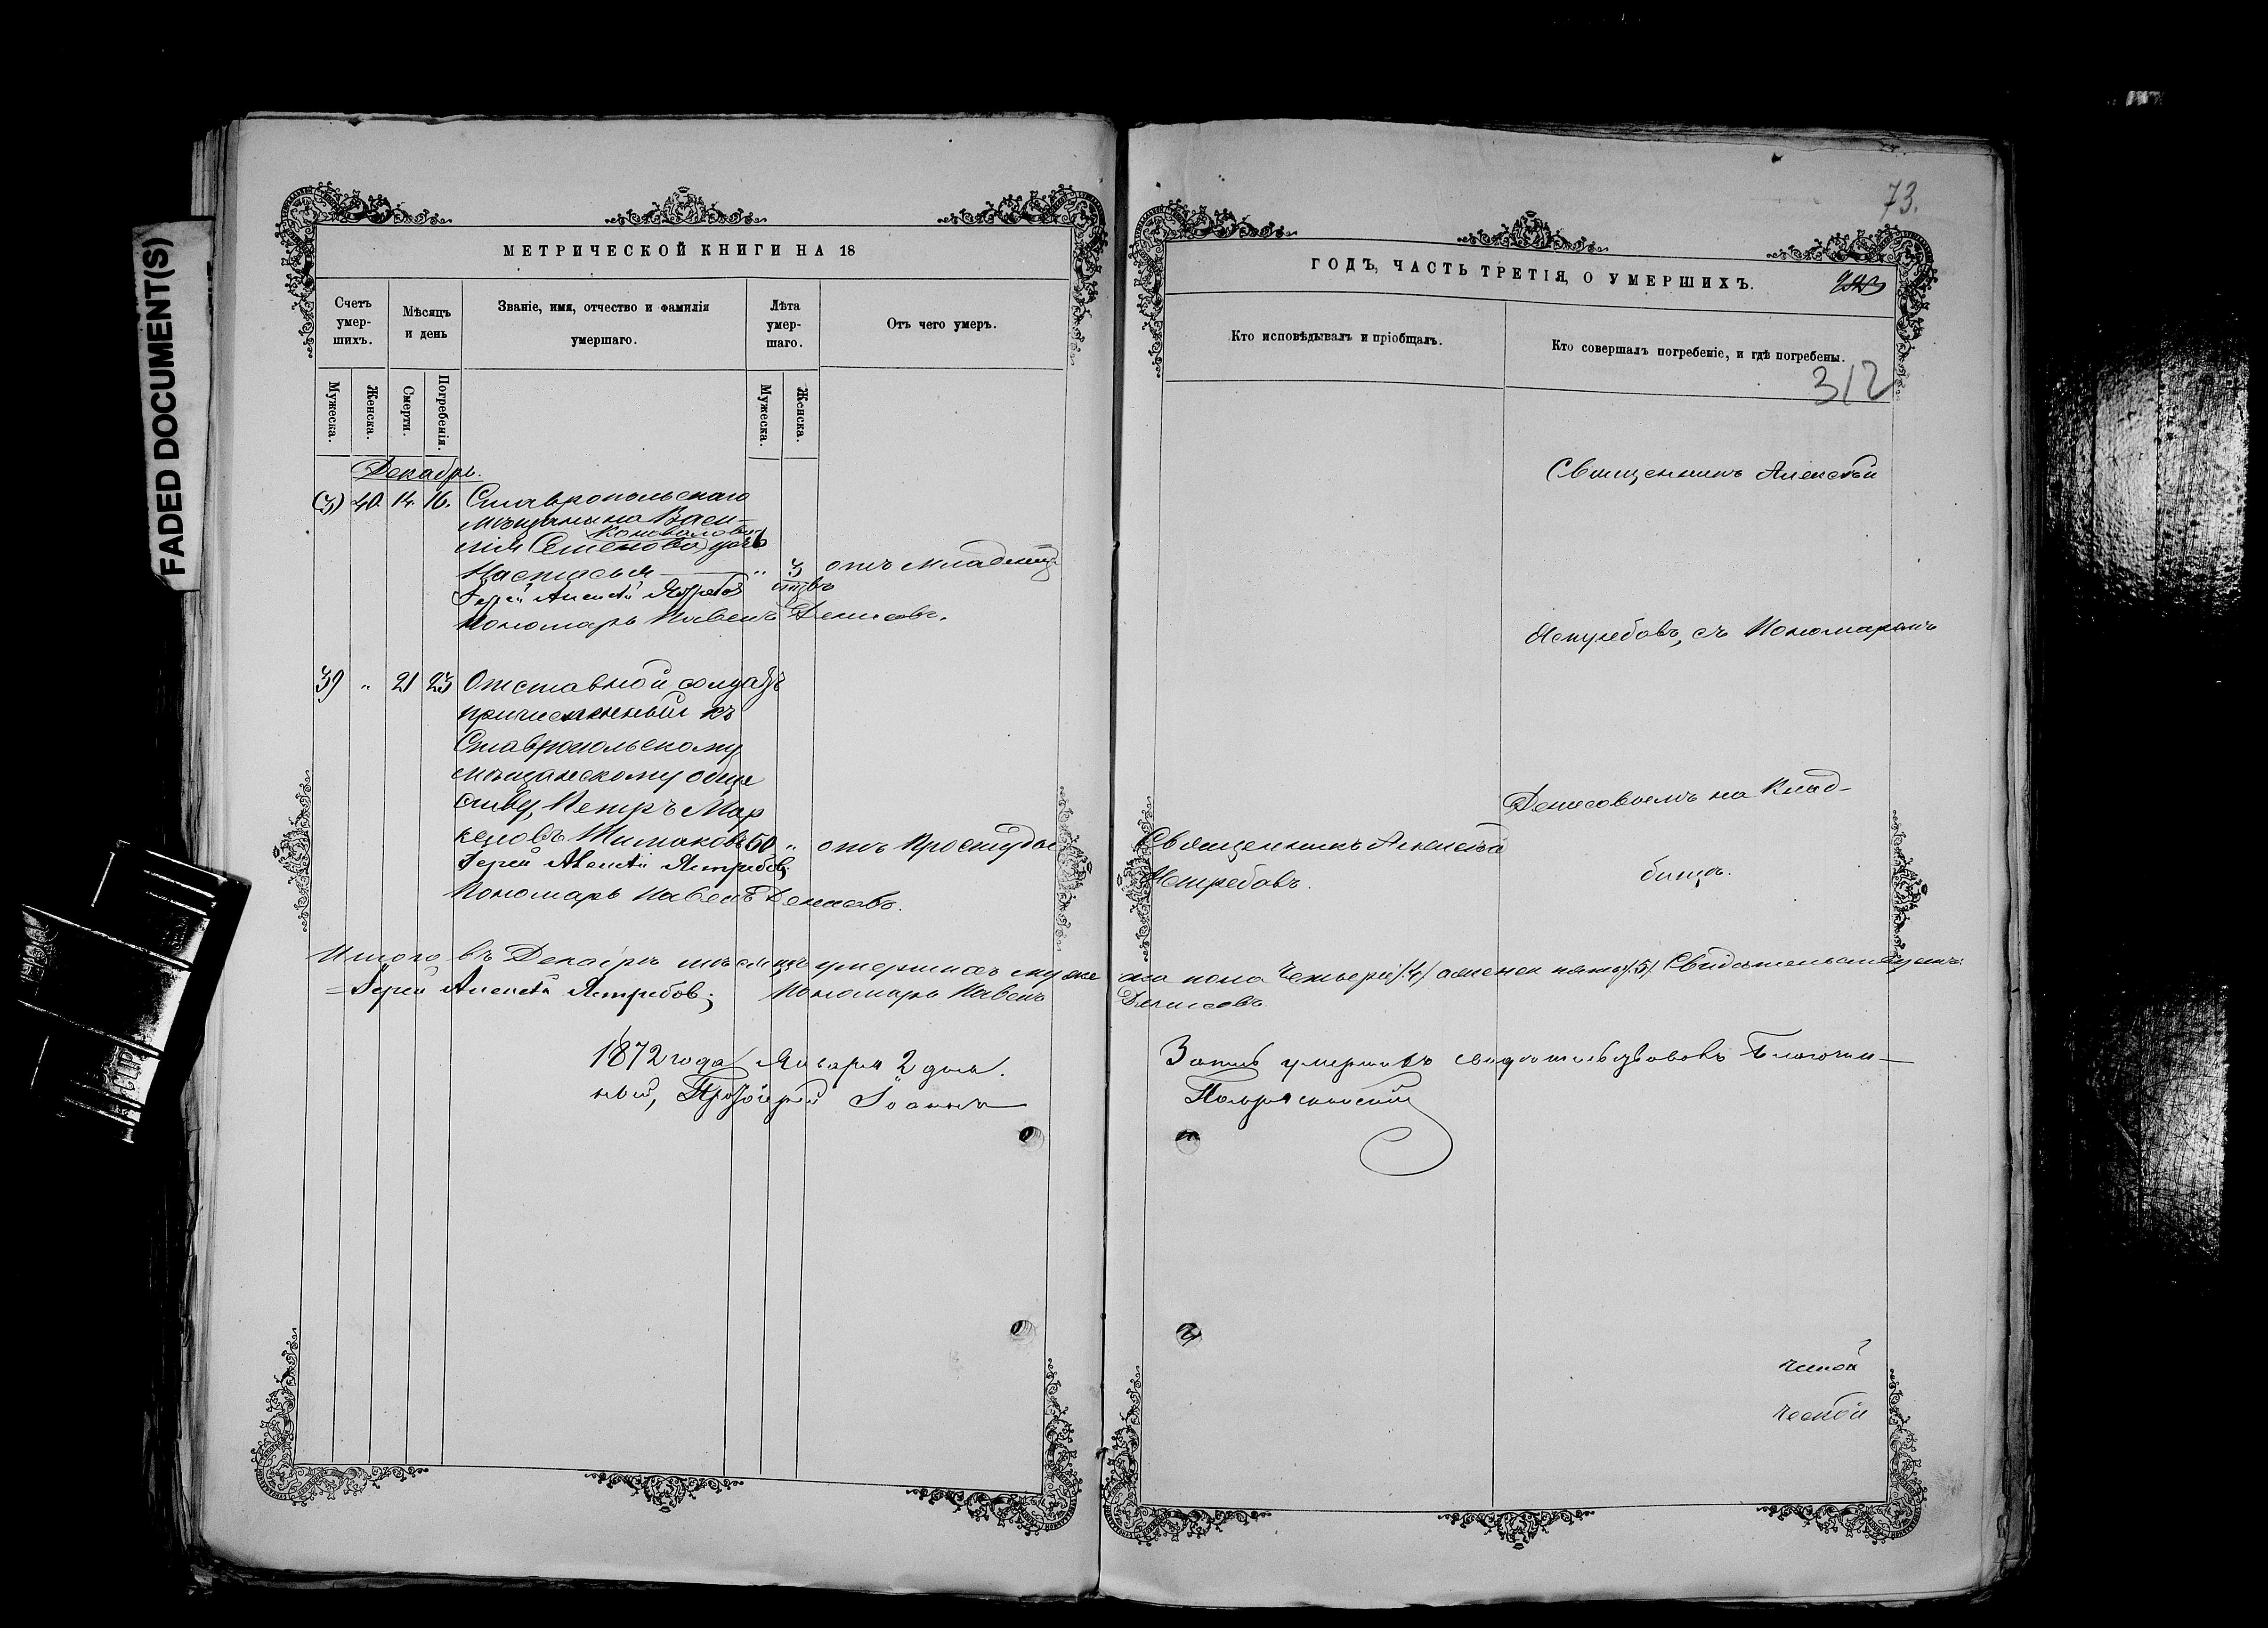 FADED DOCUMENT(S)
МЕТРИЧЕСКОЙ КНИГИ НА 18
Счетъ умер-шихъ.
Мѣсяцъ и день
Званіе, имя, отчество и фамилія умершаго.
Лѣта умер-шаго.
Отъ чего умеръ.
Мужеска.
Женска.
Смерти.
Погребенія.
Мужеска.
Женска.
Декабрь.
40 14. 16. Ставропольскаго
мѣщанина Васи-
лія Семенова дочь
Коновалова
Настасья " 3 отъ младенче
ства
Іерей Алексѣй Ястребовъ
Пономарь Павелъ Денисовъ.
39 " 21 23 Отставной солдатъ
причисленный къ
Ставропольскому
мѣщанскому обще
ству, Петръ Мар
келовъ 50 " отъ простуды
Іерей Алексѣй Ястребовъ
Пономарь Павелъ Денисовъ.
Итого въ Декабрѣ мѣсяцѣ умершихъ муже
Іерей Алексѣй Ястребовъ; Пономарь Павелъ
1872 года Января 2 дня.
ный, Протоіерей Іоаннъ
73.
ГОДЪ, ЧАСТЬ ТРЕТІЯ, О УМЕРШИХЪ.
Кто исповѣдывалъ и пріобщалъ.
Кто совершалъ погребеніе, и гдѣ погребены.
312
Священникъ Алексѣй
Ястребовъ, съ Пономаремъ
Денисовымъ на Клад-
бищѣ.
Священникъ Алексѣй
Ястребовъ.
ска пола четыре /4/ а женск пять /5/ Свидѣтельствуемъ:
Денисовъ.
Запись умершихъ свидѣтельствовалъ Благочин-